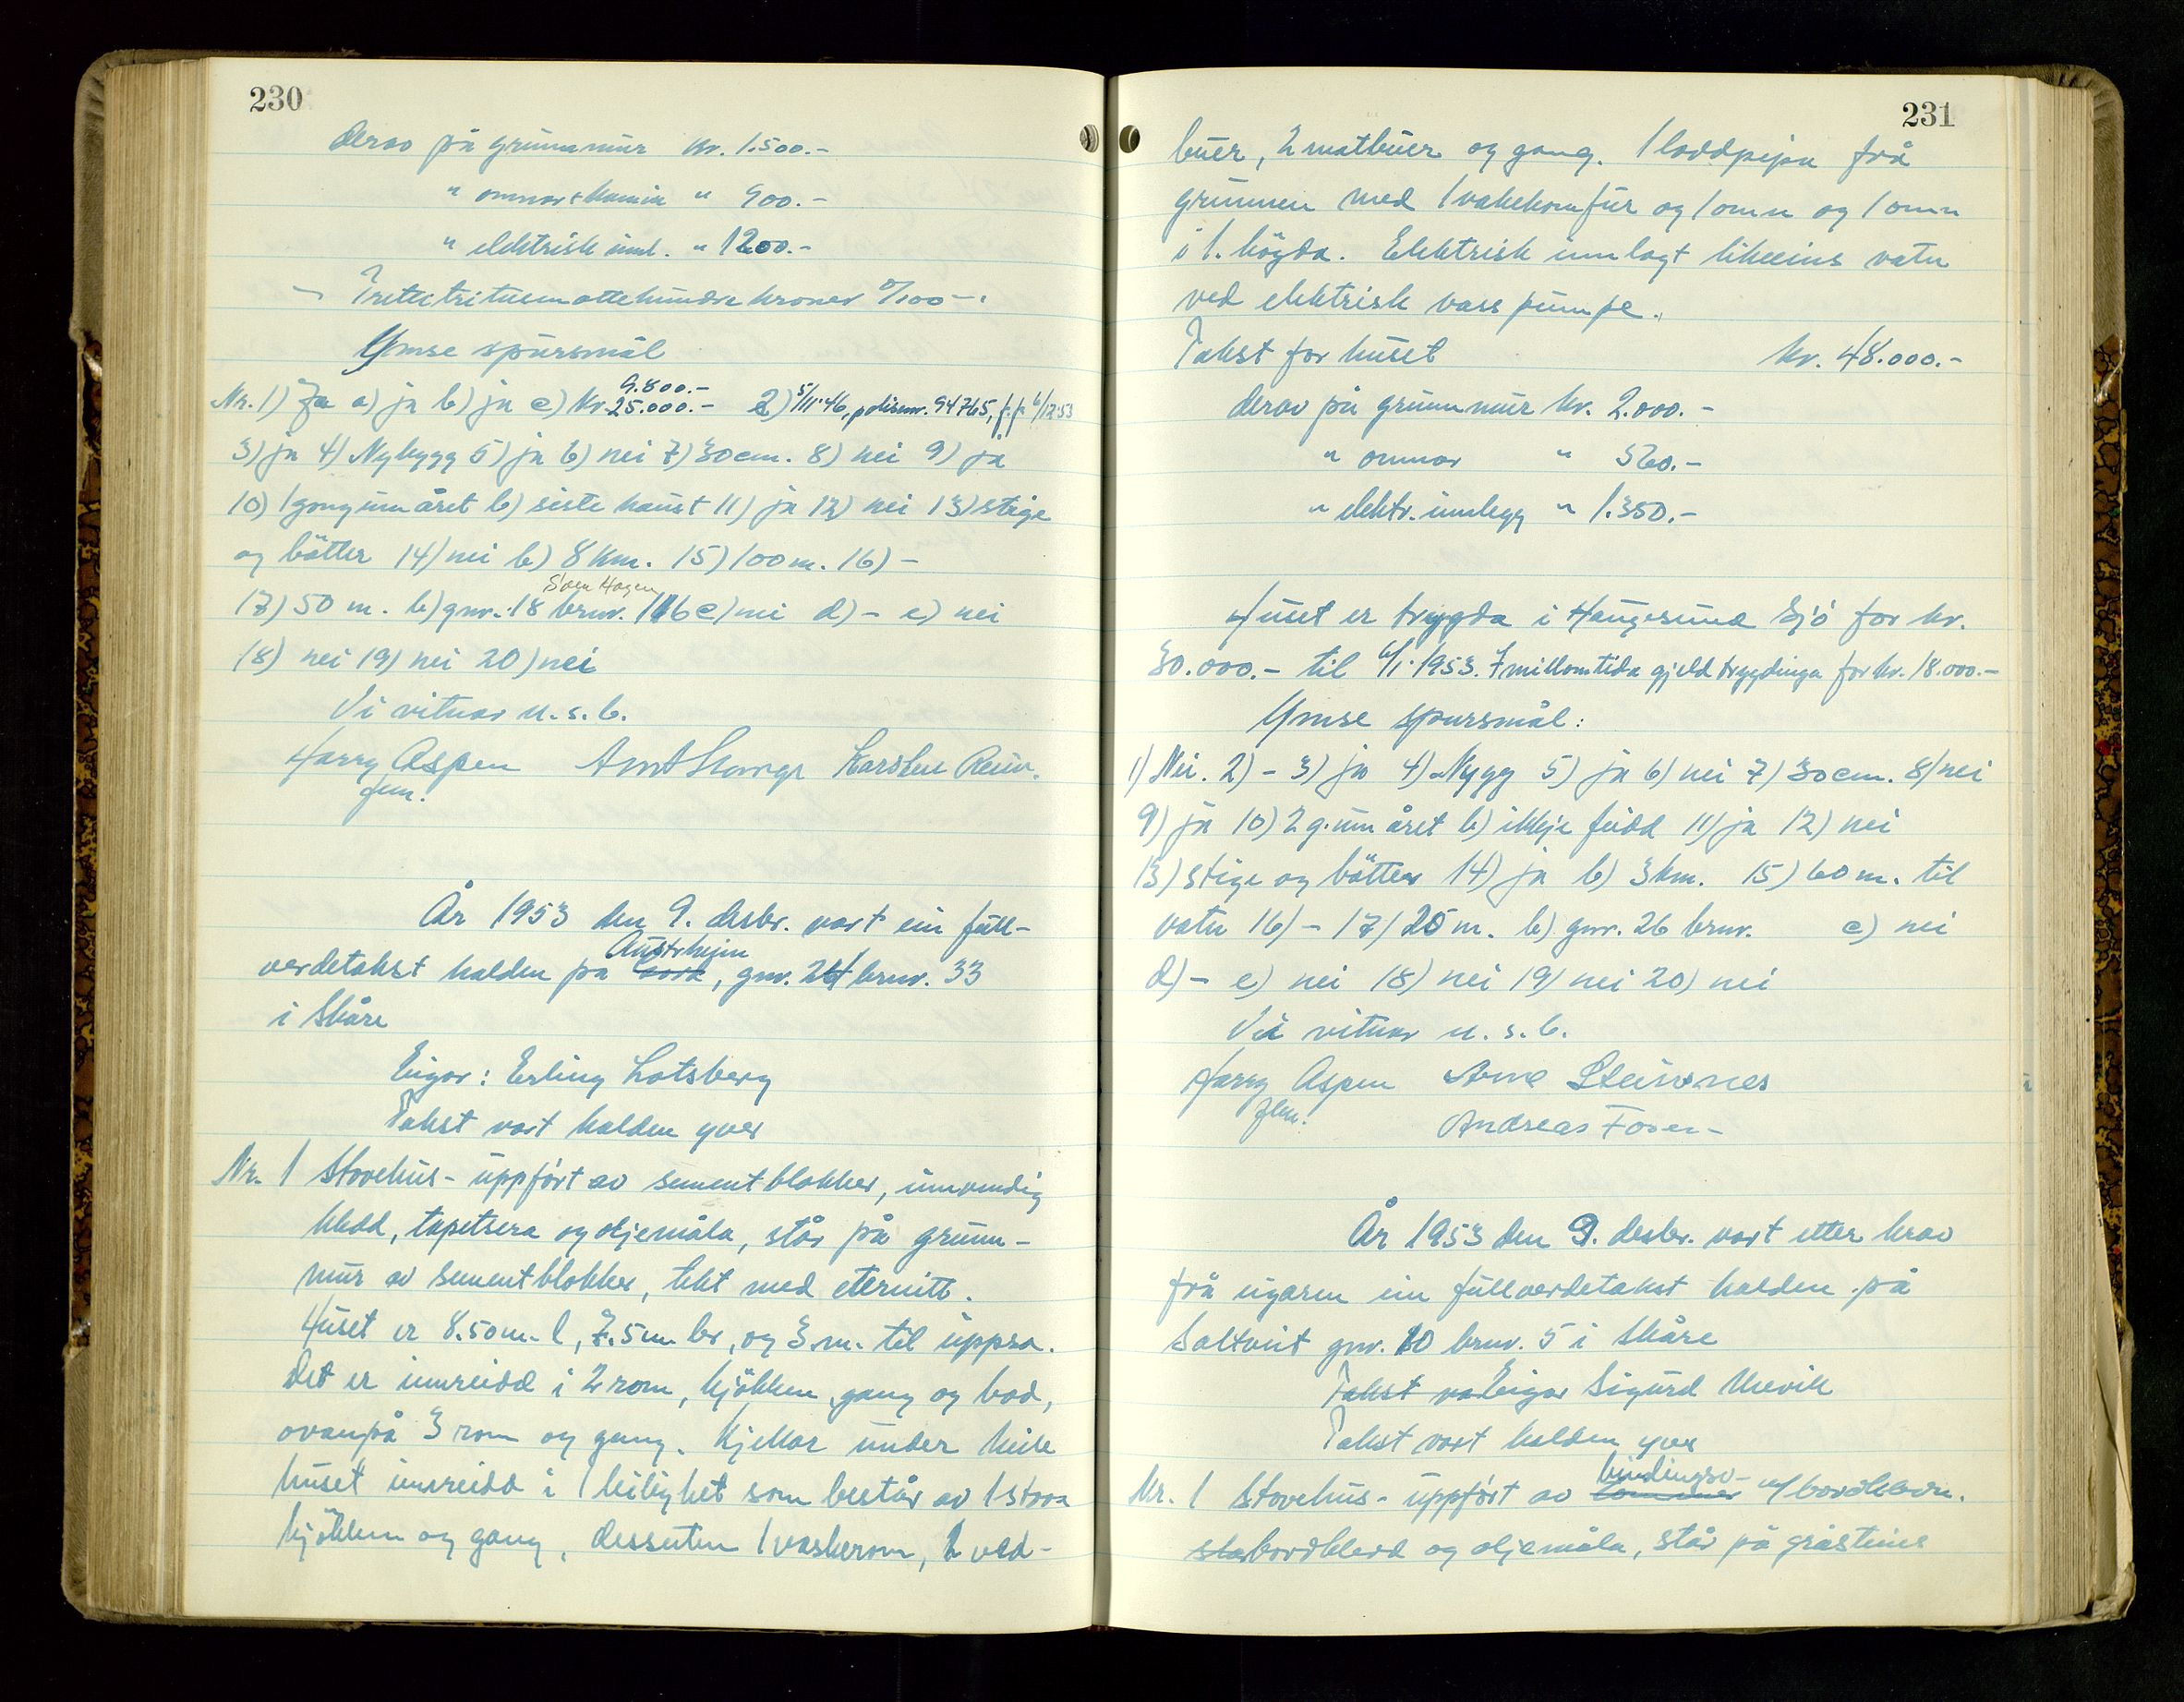 230
derav på grunnmur kr. 1.500.-
" omnar + kamin " 900.-
" elektrisk innl. " 1200.-
- Trettitritusenottehundre kroner 0/100-.
Ymse spursmål
Nr. 1) Ja a) ja b) ja c) kr. 25.000.- 9.800.- 2) 5/11.46, polisenr. 94765, f.f. 6/12.53
3) ja 4) Nybygg 5) ja 6) nei 7) 30 cm. 8) nei 9) ja
10) 1 gong um året b) siste haust 11) ja 12) nei 13) stige
og bötter 14) nei b) 8 km. 15) 100 m. 16) -
Sven Hagen
17) 50 m. b) gnr. 18 brnr. 116 c) nei d) - e) nei
18) nei 19) nei 20) nei
Vi vitnar u. s. b.
Harry Aspen Karsten
fm.
År 1953 den 9. desbr. vart ein full-
Austrheim
verdetakst halden på , gnr. 26 brnr. 33
i Skåre
Eigar: Erling Lotsberg
Takst vart halden yver
Nr. 1 Stovehus - uppfört av sementblokker, innvendig
kledd, tapetsera og oljemåla, står på grunn-
mur av sementblokker, tekt med eternitt.
Huset er 8.50 m. l, 7.5 m br, og 3 m. til uppsa.
Det er innreidd i 2 rom, kjökken, gang og bad,
ovanpå 3 rom og gang. Kjellar under heile
huset innreidd i 1 leilighet som består av 1 stova
kjökken og gang, dessuten 1 vaskerom, 2 ved-
231
buer, 2 matbuer og gang. 1 loddpipa frå
grunnen med 1 vakekomfur og 1 omn og 1 omn
i 1. högda. Elektrisk innlagt likeeins vatn
ved elektrisk vasspumpe.
Takst for huset kr. 48.000.-
derav på grunnmur kr. 2.000.-
" omnar " 560.-
" elektr. innlegg " 1.350.-
Huset er trygda i Haugesund Sjö for kr.
30.000.- til 6/1. 1953. I millomtida gjeld trygdinga for kr. 18.000.-
Ymse spursmål:
1) Nei. 2) - 3) ja 4) Nygg 5) ja 6) nei 7) 30 cm. 8) nei
9) ja 10) 2 g. um året b) ikkje feidd 11) ja 12) nei
13) stige og bötter 14) ja b) 3 km. 15) 60 m. til
vatn 16) - 17) 25 m. b) gnr. 26 brnr. c) nei
d) - e) nei 18) nei 19) nei 20) nei
Vi vitnar u. s. b.
Harry Aspen Arne Steinsnes
fm. Andreas Fosen
År 1953 den 9. desbr. vart etter krav
frå eigaren ein fullverdetakst halden på
Saltveit gnr. 10 brnr. 5 i Skåre
Takst va Eigar Sigurd
Takst vart halden yver
bindingsv-
Nr. 1 Stovehus - uppfört av tömmer m/bordkledn.
sta bordkledd og oljemåla, står på gråsteins